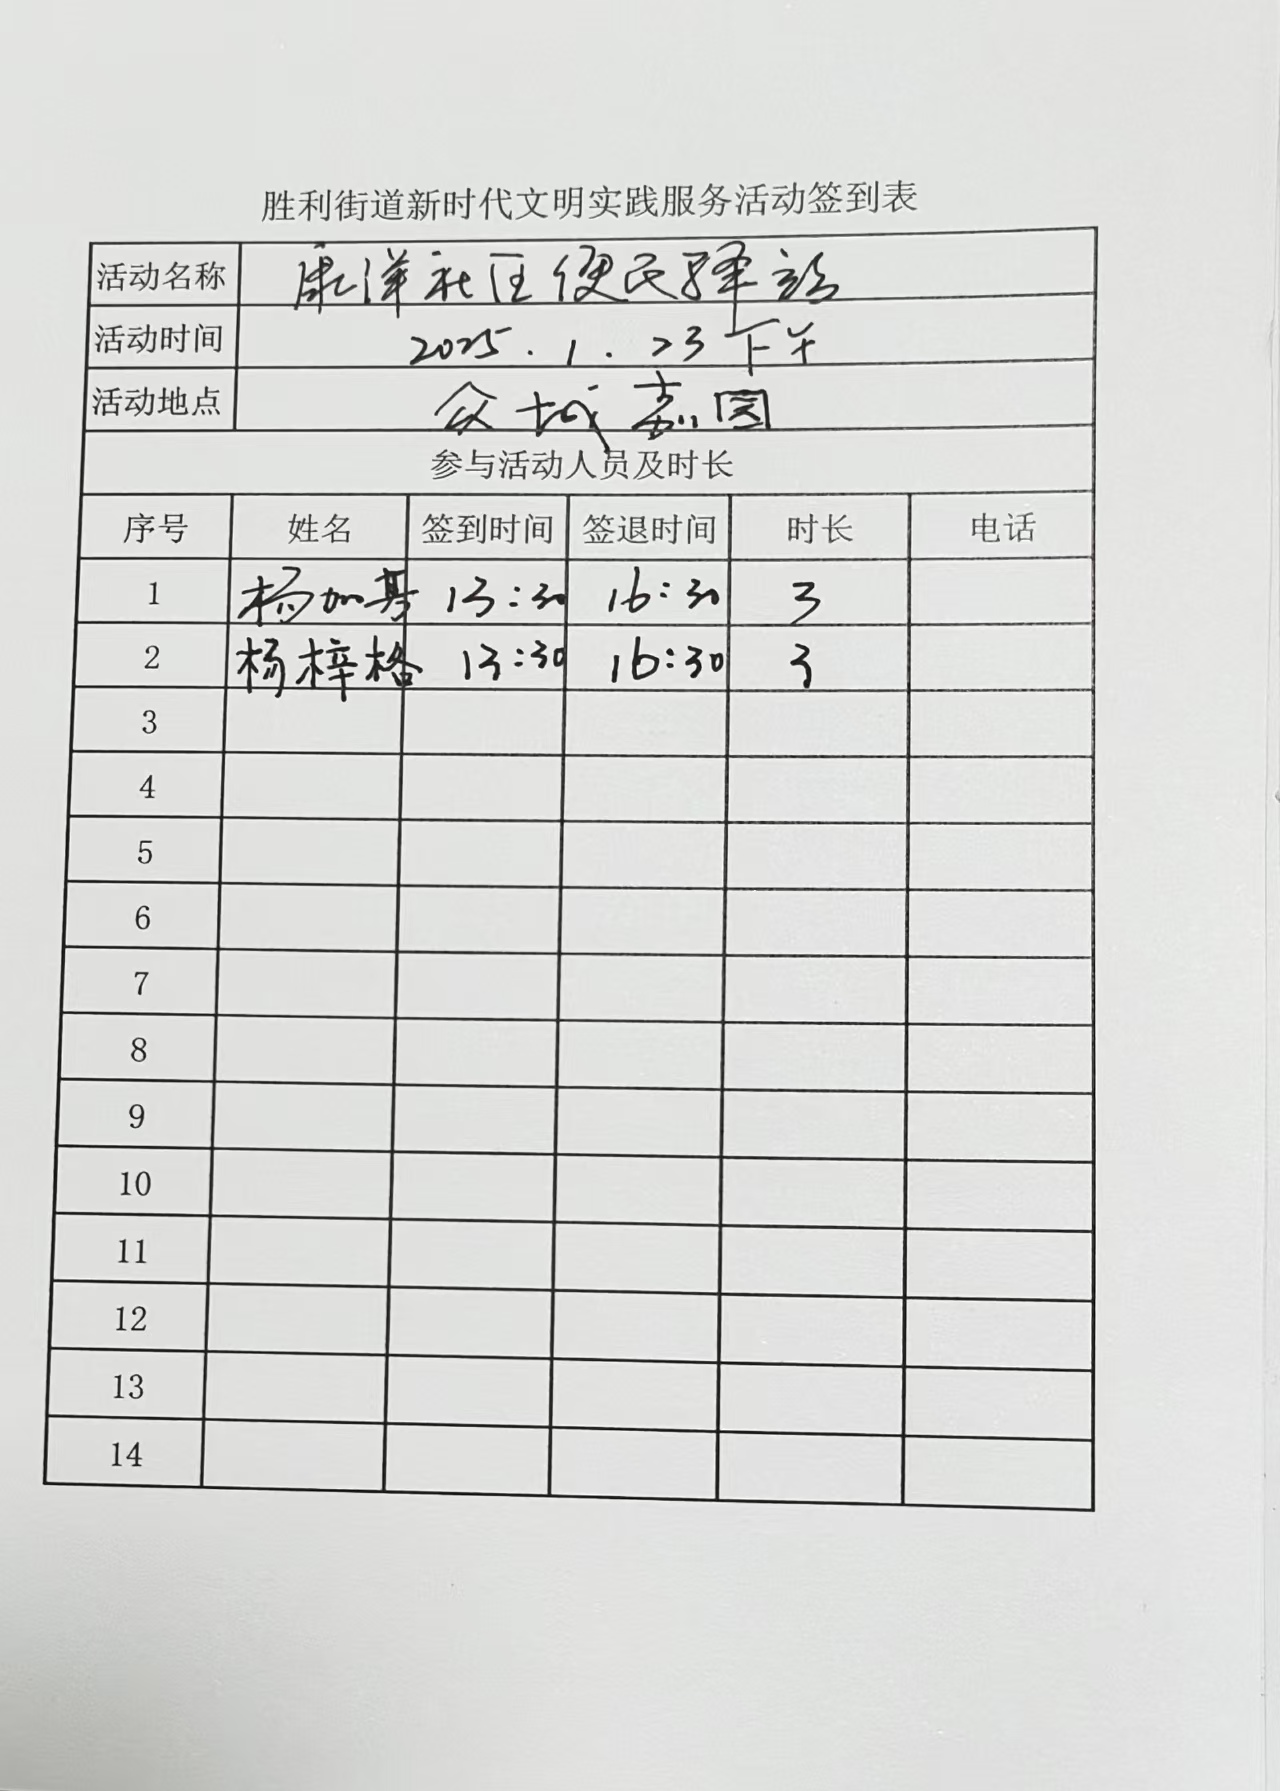 胜利街道新时代文明实践服务活动签到表
活动名称 康洋社区便民驿站
活动时间 2025.1.23下午
活动地点 众城嘉园
参与活动人员及时长
序号 姓名 签到时间 签退时间 时长 电话
1 杨加基 13:30 16:30 3
2 杨梓格 13:30 16:30 3
3
4
5
6
7
8
9
10
11
12
13
14